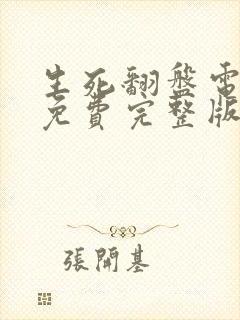 生死翻盤電
免費完整版
張開基